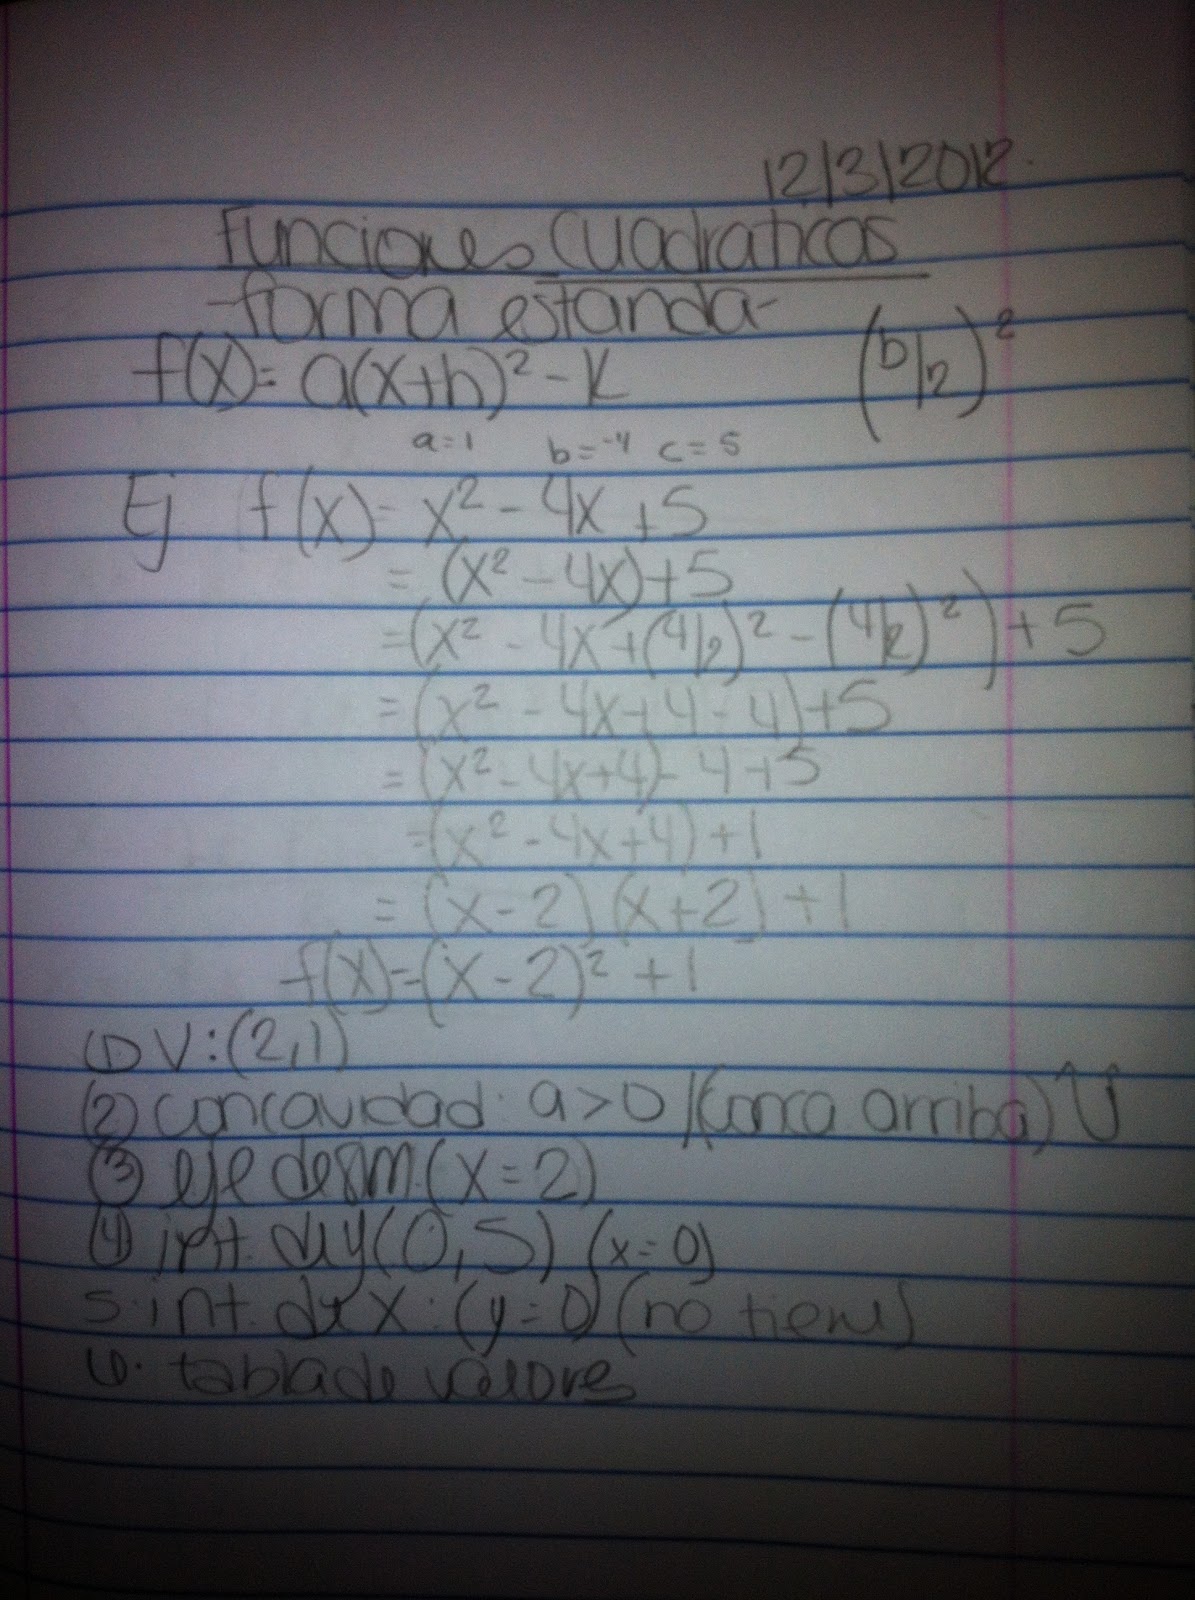 12/3/2012
Funciones Cuadraticas
-forma estanda-
f(x)= a(x+h)² - k (b/2)²
a=1 b=-4 c=5
Ej f(x)= x² - 4x + 5
= (x² - 4x)+5
=(x² - 4x+(4/2)² - (4/2)²)+5
=(x² - 4x+4-4)+5
=(x² - 4x+4)-4+5
=(x² - 4x+4)+1
= (x-2)(x+2)+1
f(x)=(x-2)²+1
(1) V:(2,1)
(2) concavidad: a>0 (conca arriba) U
(3) eje de sim.(x=2)
(4) int. de y(0,5) (x=0)
5. int. de x: (y=0) (no tiene)
6. tabla de valores